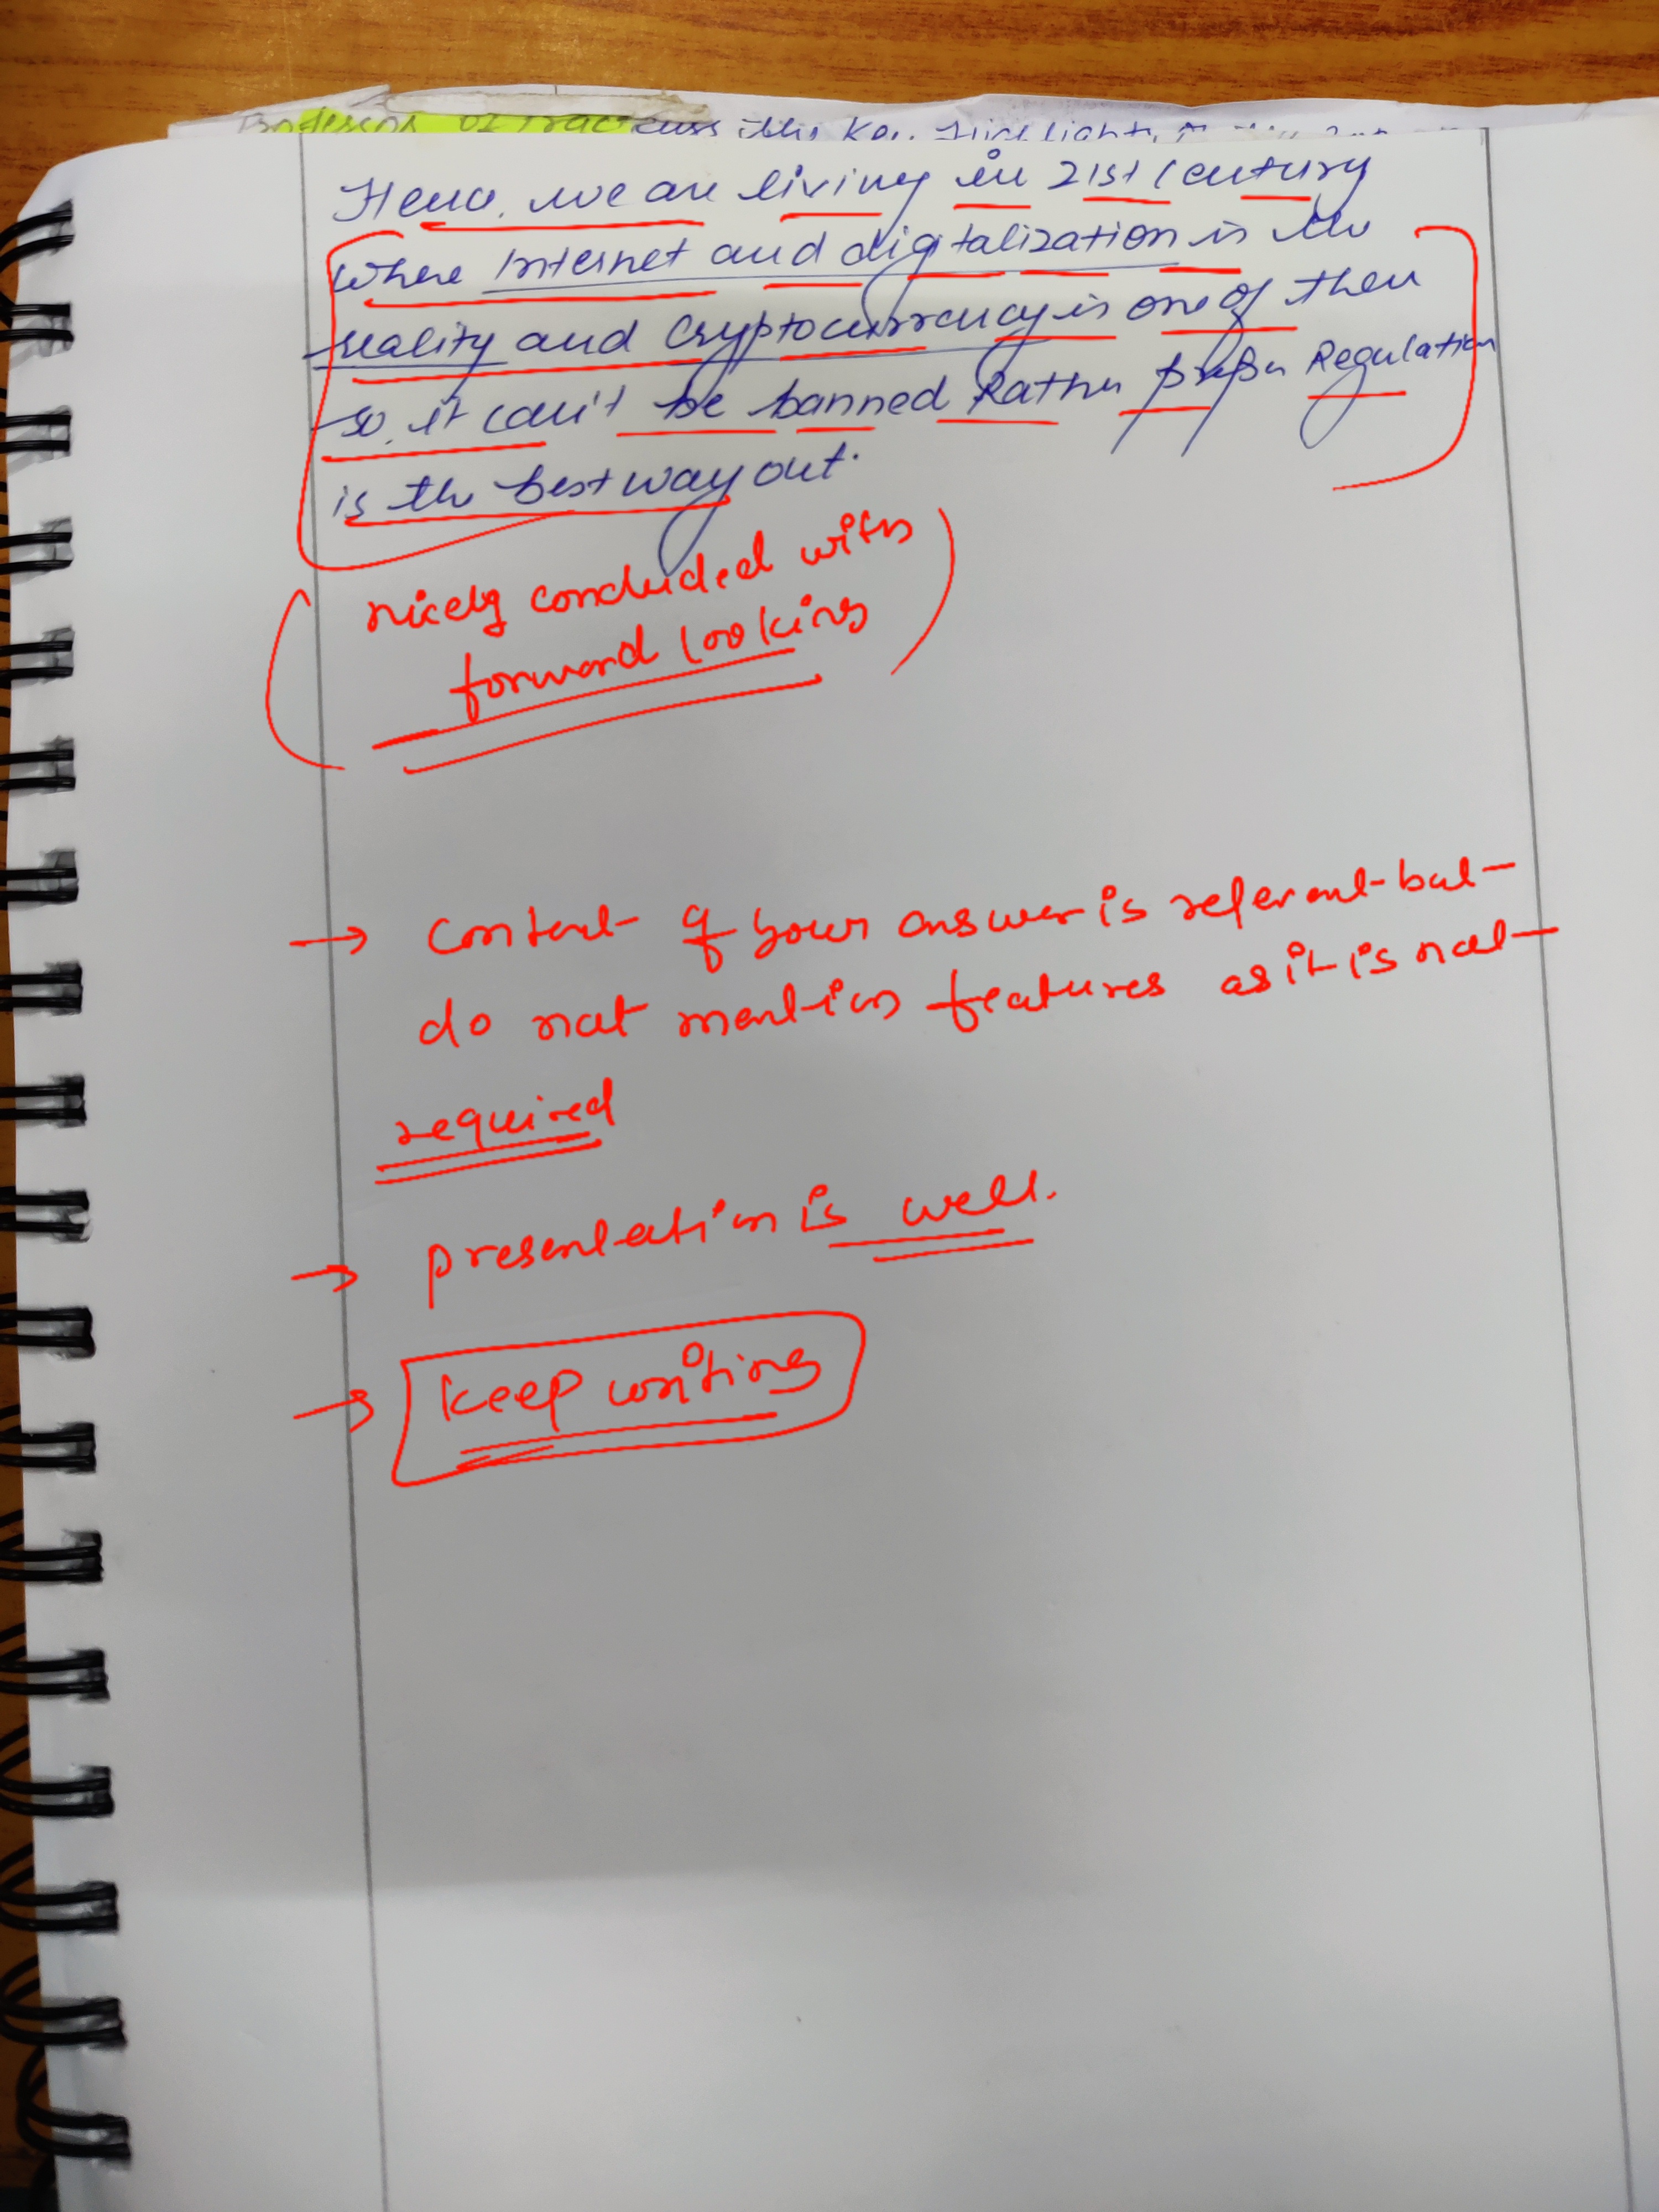 Hence, we are living in 21st Century
where Internet and digitalization is the
reality and Cryptocurrency is one of them
so, it can't be banned Rather proper Regulation
is the best way out.
nicely concluded with
forward looking
→ content of your answer is referent but
do not mention features as it is not
required
→ presentation is well.
→ keep writing